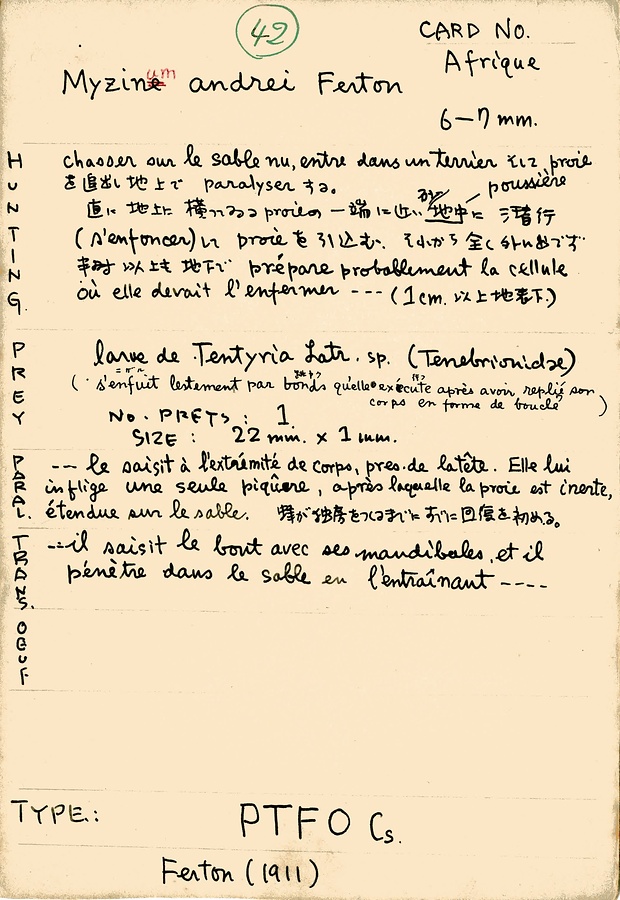 42
CARD NO.
Afrique
Myzine um andrei Ferton
6—7 mm.
HUNTING.
chasser sur le sable nu, entre dans un terrier そして proie
を追出し地上で paralyser する。
poussière
直に地上に横たわる proie の一端に近い砂地中に潜行
(s'enfoncer)して proie を引込む. それから全く外に出でず
半時以上も地下で prépare probablement la cellule
où elle devait l'enfermer --- (1cm. 以上地表下.)
PREY
larve de Tentyria Latr. sp. (Tenebrionidae)
(s'enfuit lestement par bonds qu'elle exécute après avoir replié son
corps en forme de boucle)
NO. PREYS : 1.
SIZE : 22 mm. x 1 mm.
PARAL.
-- le saisit à l'extrémité de corps, pres de la tête. Elle lui
inflige une seule piqûre, après laquelle la proie est inerte,
étendue sur le sable. 蜂が独房をつくるまでにすでに回復を初める。
TRANS.
--il saisit le bout avec ses mandibales, et il
pénètre dans le sable en l'entraînant ----
OEUF
TYPE.:
PTFO Cs.
Ferton (1911)